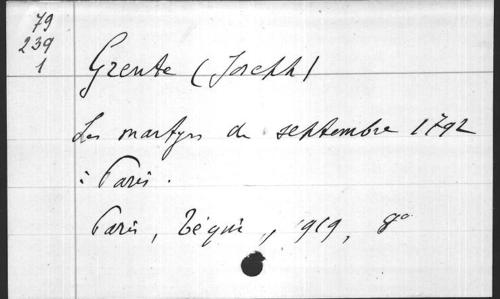 79
239
1
Grente (Joseph)
Les martyrs de septembre 1792
à Paris.
Paris, Téqui, 1919, 8°